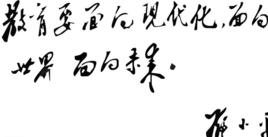 教育要面向现代化，面向
世界 面向未来。
邓小平